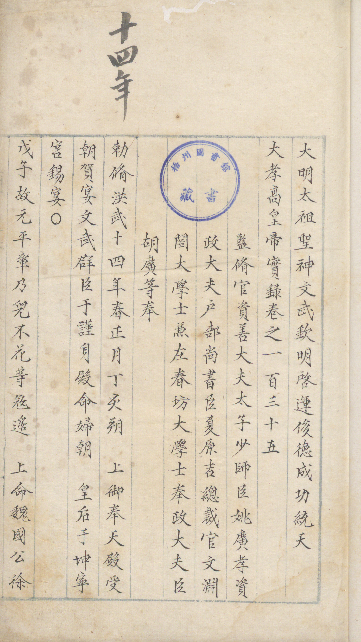 十四年
大明太祖聖神文武欽明啓運俊德成功統天
大孝高皇帝實錄卷之一百三十五
監脩官資善大夫太子少師臣姚廣孝資
政大夫戶部尚書臣夏原吉總裁官文淵
閣大學士兼左春坊大學士奉政大夫臣
胡廣等奉
勅脩洪武十四年春正月丁亥朔 上御奉天殿受
朝賀宴文武群臣于謹身殿命婦朝 皇后于坤寧
宮錫宴○
戊子故元平章乃兒不花等寇邊 上命魏國公徐
州圖書館
藏書